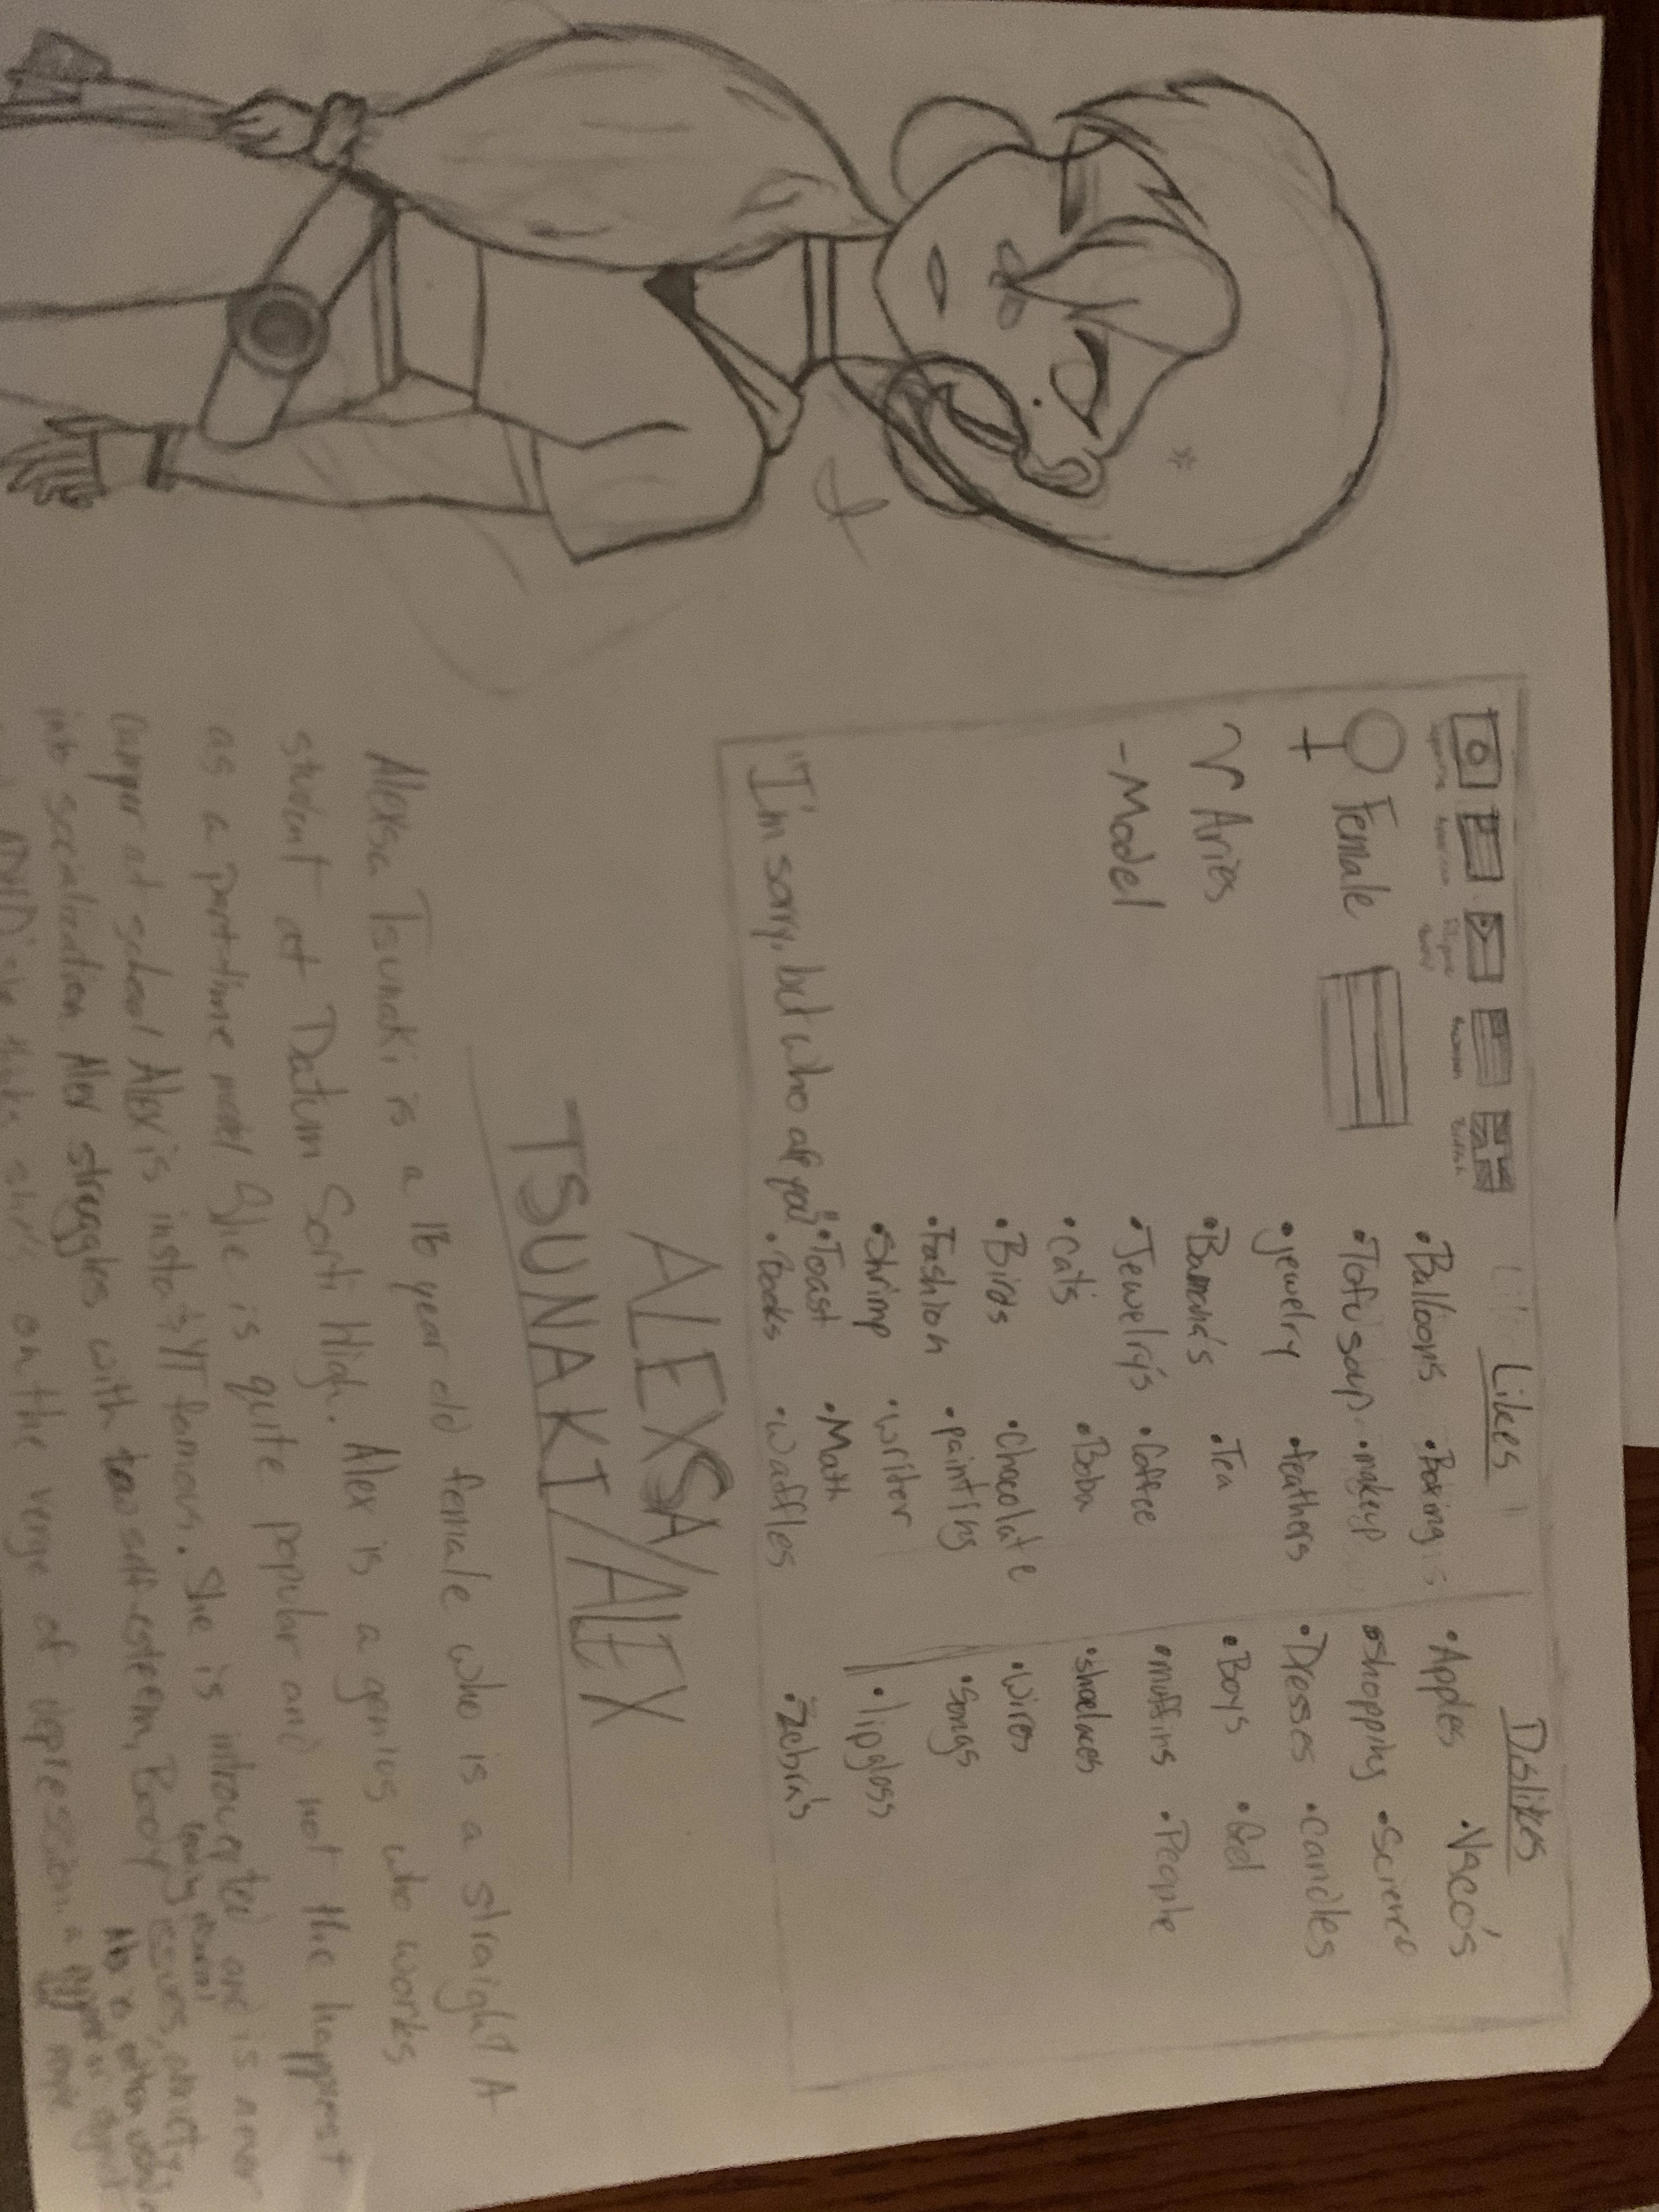 Likes
Dislikes
• Balloons • Boxing • Apples • Vsco's
Female • Tofu soup • makeup • shopping • science
• jewelry • feathers • Dresses • candles
Aries • Banana's • Tea • Boys • Gel
- Model • Jewelry's • Coffee • muffins • People
• cats • Boba • shoelaces
• Birds • Chocolate • wires
• Fashion • painting • songs
• shrimp • writer • lipgloss
• Toast • Math
"I'm sorry, but who are you?" • Books • waffles • Zebra's
ALEXSA/ALEX
TSUNAKI/
Alexsa Tsunaki is a 16 year old female who is a straight A
student at Datum Sorti High. Alex is a genius who works
as a part-time model She is quite popular and not the happest
camper at school Alex is insta & YT famous. She is introverted and is never
into socialization. Alex struggles with low self-esteem, Body issues, anxiety,
on the verge of depression.